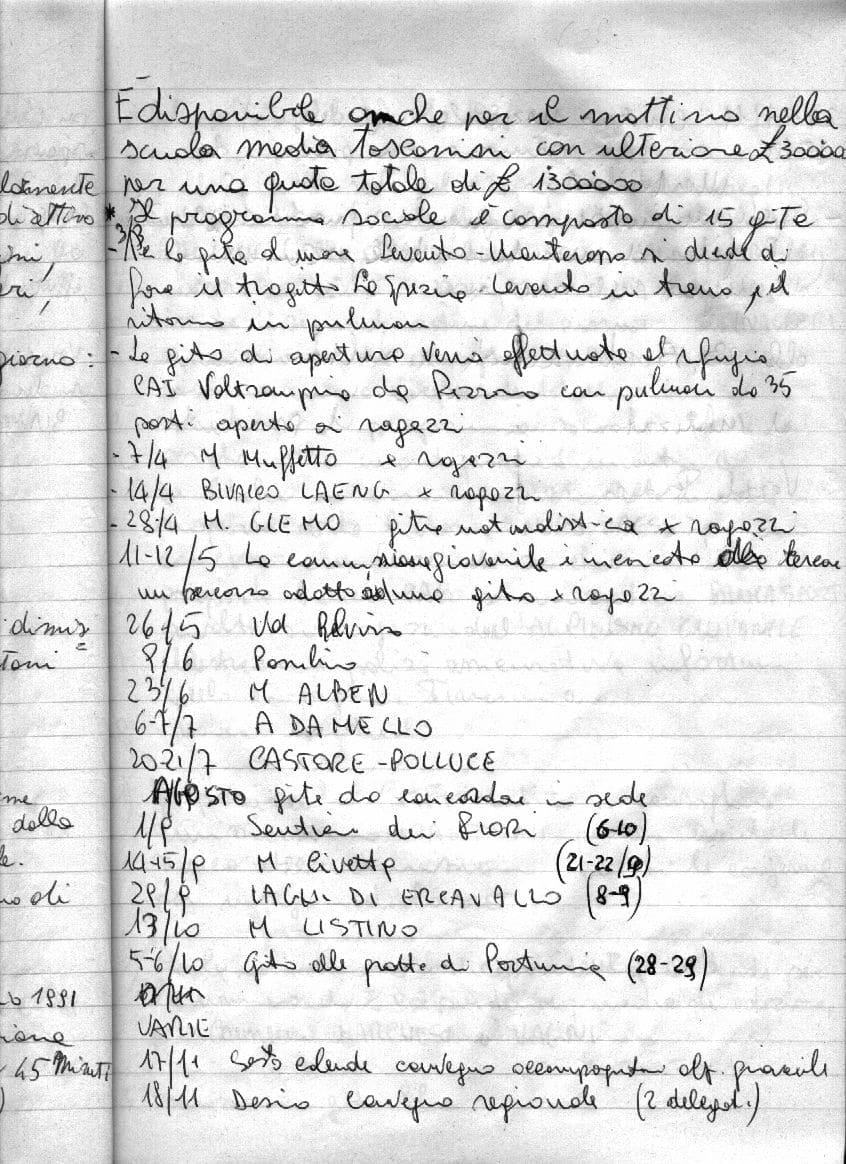 E disponibile anche per il mattino nella
scuola media Toscanini con ulteriore £ 300000
per una quota totale di £ 1300000
* Il programma sociale è composto di 15 gite
- 3/3 Per la gita al mare Levanto-Monterosso si decide di
fare il tragitto La Spezia Levanto in treno, il
ritorno in pulman
- La gita di apertura verrà effettuata al rifugio
CAI Valtrompia da Pezzoro con pulman da 35
posti aperto ai ragazzi
- 7/4 M Muffetto x ragazzi
- 14/4 BIVACCO LAENG x ragazzi
- 28/4 M. GLEMO gita naturalistica x ragazzi
11-12/5 La commissione giovanile è incaricata di cercare
un percorso adatto ad una gita x ragazzi
26/5 Val
9/6
23/6 M ALBEN
6-7/7 ADAMELLO
20-21/7 CASTORE-POLLUCE
AGOSTO gite da concordare in sede
1/9 Sentiero dei FIORI (6-10)
14-15/9 M Civetta (21-22/9)
29/9 LAGHI DI ERCAVALLO (8-9)
13/10 M LISTINO
5-6/10 Gita alle grotte di Postumia (28-29)
VARIE
17/11 Sesto calende convegno accompagnatori alp. giovanile
18/11 Desio convegno regionale (2 delegati)
lamente
di attivo
mi,
eri,
giorno:
dimis=
toni
me
della
le.
no di
1991
ione
45 Minuti
)